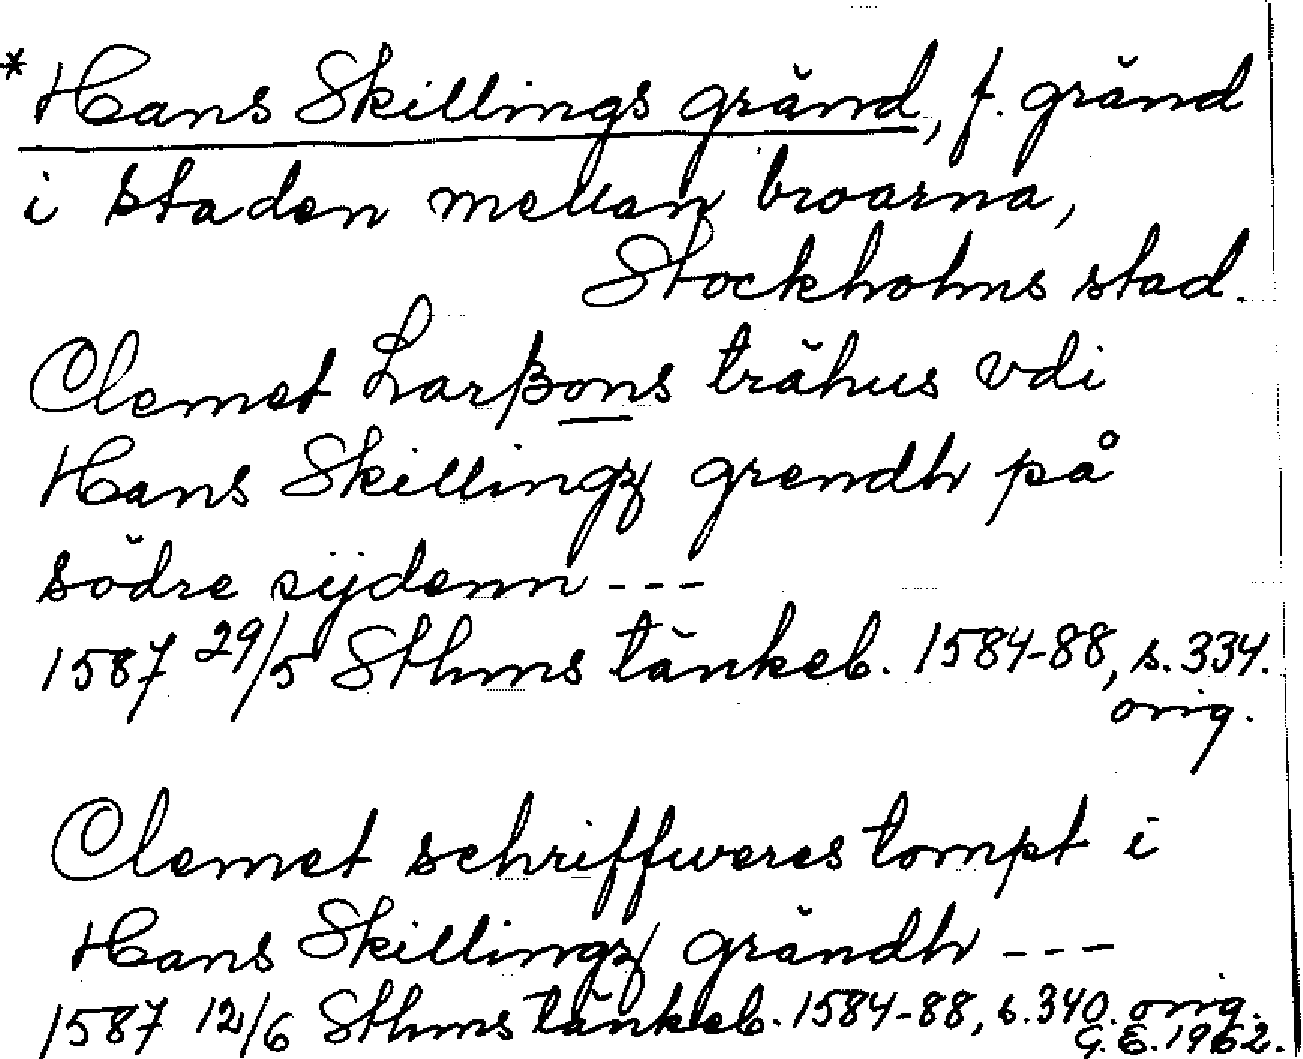 *Hans Skillings gränd, f. gränd
i staden mellan broarna,
Stockholms stad.
Clemet Larßons trähus vdi
Hans Skillingz grendh på
södre sÿdenn ---
1587 29/5 Sthms tänkeb. 1584-88, s. 334.
orig.
Clemet schriffweres tompt i
Hans Skillingz grändh ---
1587 12/6 Sthms tänkeb. 1584-88, s. 340. orig.
G. E. 1962.